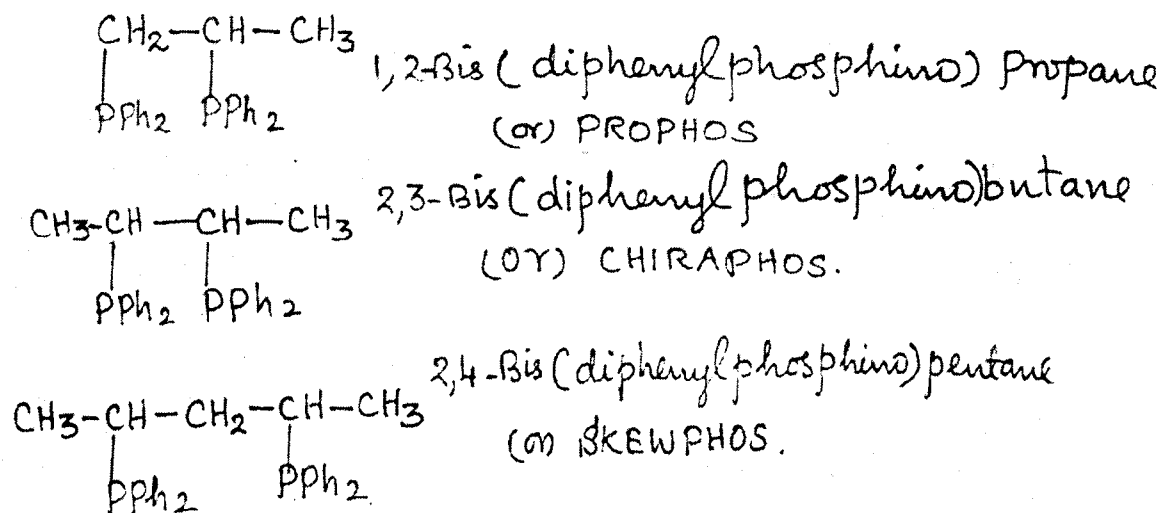 CH2-CH-CH3
PPh2 PPh2
1,2-Bis(diphenylphosphino) Propane
(or) PROPHOS
CH3-CH-CH-CH3
PPh2 PPh2
2,3-Bis(diphenylphosphino)butane
(OR) CHIRAPHOS.
CH3-CH-CH2-CH-CH3
PPh2 PPh2
2,4-Bis(diphenylphosphino)pentane
(or) SKEWPHOS.